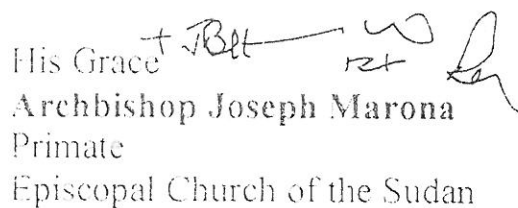 His Grace
Archbishop Joseph Marona
Primate
Episcopal Church of the Sudan